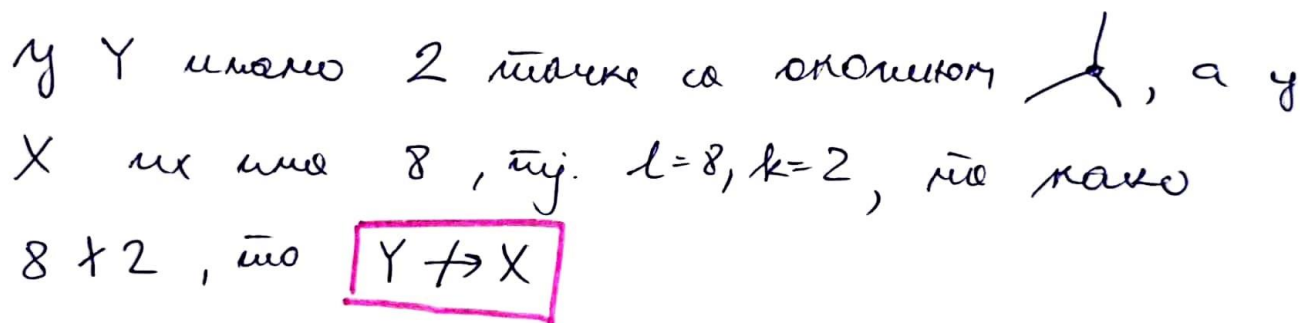 У Y имамо 2 тачке са околином , а у
X их има 8, тј. l=8, k=2, па како
8∤2, то Y ↛ X